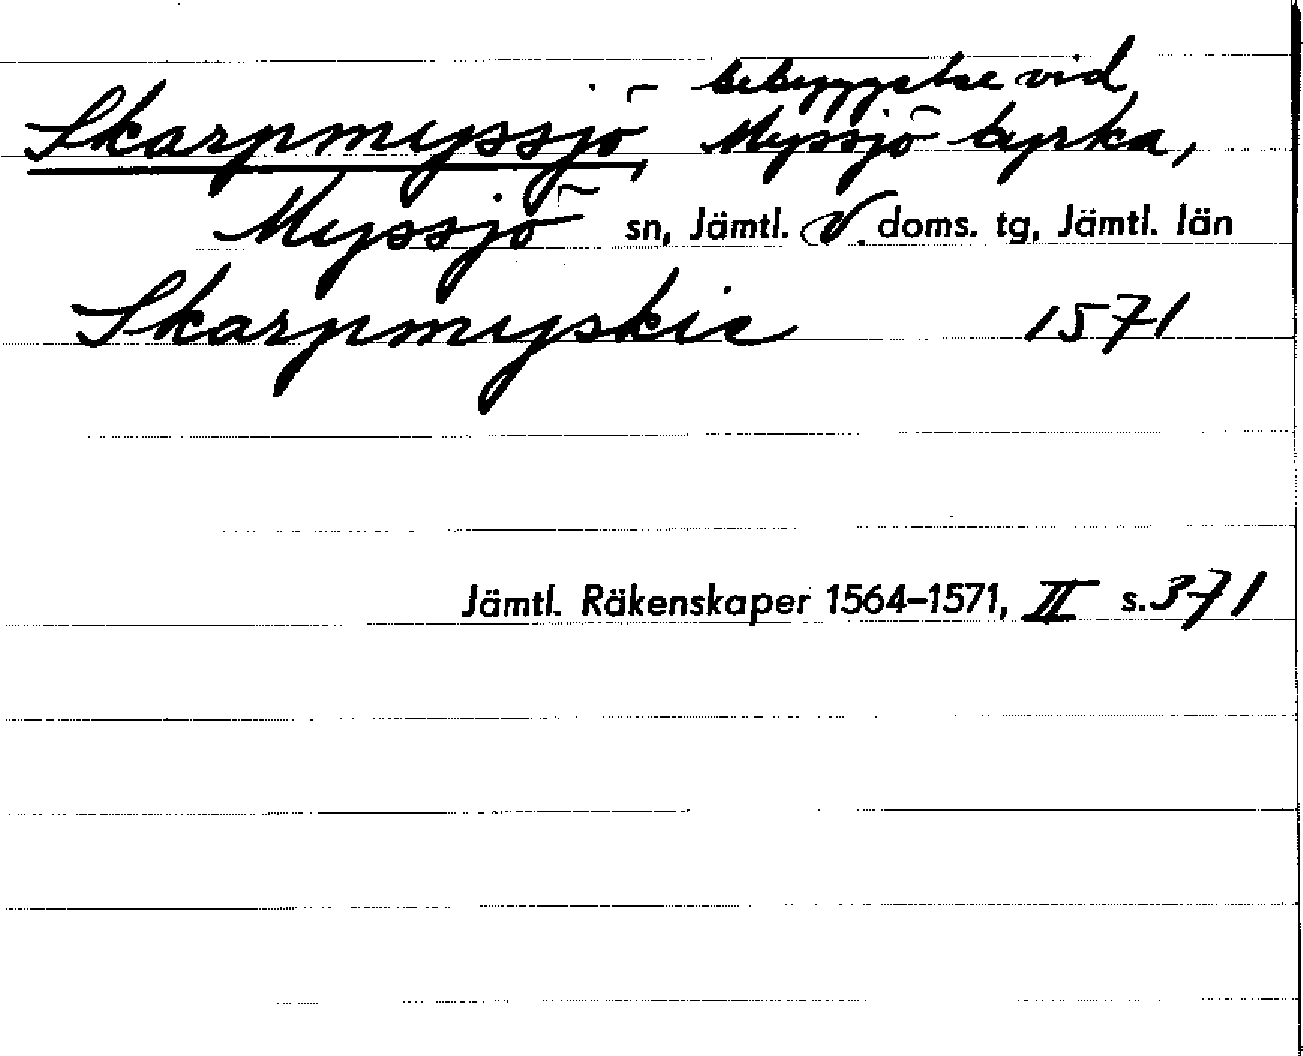 bebyggelse vid
Skarpmyssjö, Myssjö kyrka,
Myssjö sn, Jämtl. V. doms. tg, Jämtl. län
Skarpmyskie 1571
Jämtl. Räkenskaper 1564-1571, II s. 371